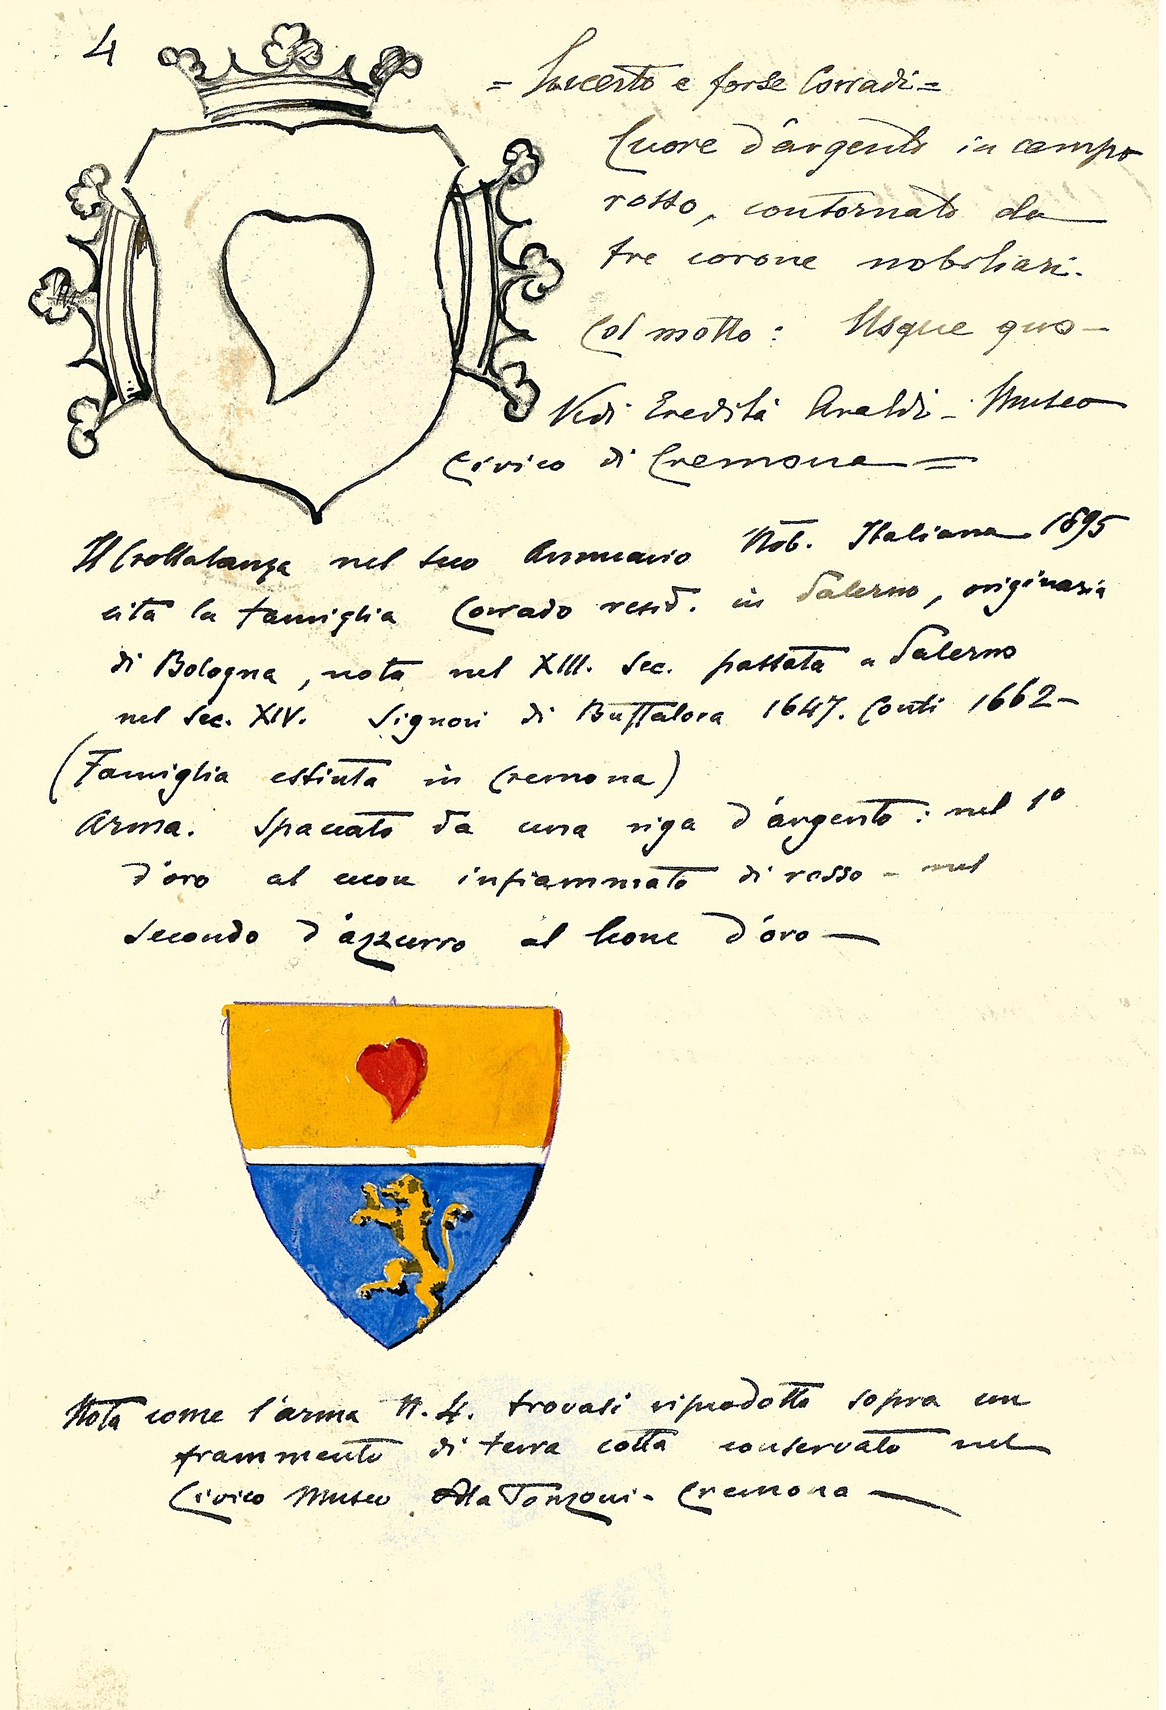 4
= Incerto e forse Corradi =
Cuore d'argento in campo
rosso, contornato da
tre corone nobiliari.
Col motto: Usque quo —
Vedi Eredità Araldi - Museo
Civico di Cremona =
Il Crollalanza nel suo Annuario Nob. Italiana 1895
cita la famiglia Corrado resid. in Salerno, originaria
di Bologna, nota nel XIII. Sec. passata a Salerno
nel Sec. XIV. Signori di Buffalora 1647. Conti 1662 —
(Famiglia estinta in Cremona)
Arma. Spaccato da una riga d'argento: nel 1º
d'oro al cuor infiammato di rosso - nel
secondo d'azzurro al leone d'oro —
Nota come l'arma N. 4. trovasi riprodotta sopra un
frammento di terra cotta conservato nel
Civico Museo Ala Ponzoni - Cremona —